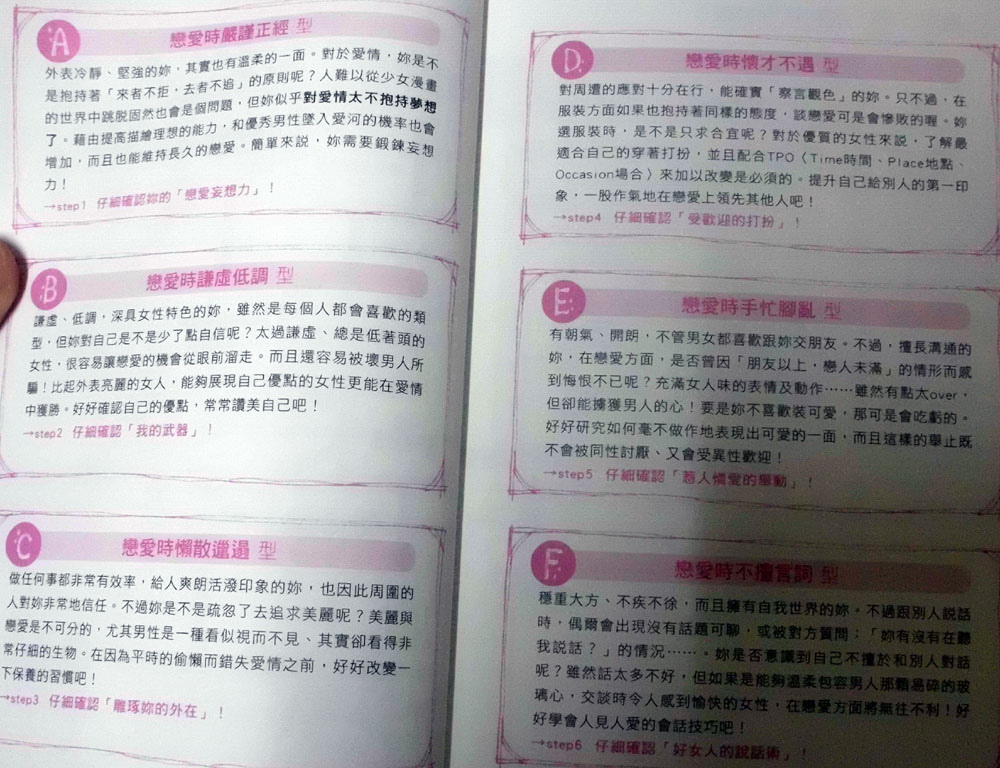 A
戀愛時嚴謹正經 型
外表冷靜、堅強的妳，其實也有溫柔的一面。對於愛情，妳是不
是抱持著「來者不拒，去者不追」的原則呢？人難以從少女漫畫
的世界中跳脫固然也會是個問題，但妳似乎對愛情太不抱持夢想
了。藉由提高描繪理想的能力，和優秀男性墜入愛河的機率也會
增加，而且也能維持長久的戀愛。簡單來説，妳需要鍛鍊妄想
力！
→step1 仔細確認妳的「戀愛妄想力」！
B
戀愛時謙虛低調 型
謙虛、低調，深具女性特色的妳，雖然是每個人都會喜歡的類
型，但妳對自己是不是少了點自信呢？太過謙虛、總是低著頭的
女性，很容易讓戀愛的機會從眼前溜走。而且還容易被壞男人所
騙！比起外表亮麗的女人，能夠展現自己優點的女性更能在愛情
中獲勝。好好確認自己的優點，常常讚美自己吧！
→step2 仔細確認「我的武器」！
C
戀愛時懶散邋遢 型
做任何事都非常有效率，給人爽朗活潑印象的妳，也因此周圍的
人對妳非常地信任。不過妳是不是疏忽了去追求美麗呢？美麗與
戀愛是不可分的，尤其男性是一種看似視而不見、其實卻看得非
常仔細的生物。在因為平時的偷懶而錯失愛情之前，好好改變一
下保養的習慣吧！
→step3 仔細確認「雕琢妳的外在」！
D
戀愛時懷才不遇 型
對周遭的應對十分在行，能確實「察言觀色」的妳。只不過，在
服裝方面如果也抱持著同樣的態度，談戀愛可是會慘敗的喔。妳
選服裝時，是不是只求合宜呢？對於優質的女性來説，了解最
適合自己的穿著打扮，並且配合TPO（Time時間、Place地點、
Occasion場合）來加以改變是必須的。提升自己給別人的第一印
象，一股作氣地在戀愛上領先其他人吧！
→step4 仔細確認「受歡迎的打扮」！
E
戀愛時手忙腳亂 型
有朝氣、開朗，不管男女都喜歡跟妳交朋友。不過，擅長溝通的
妳，在戀愛方面，是否曾因「朋友以上，戀人未滿」的情形而感
到悔恨不已呢？充滿女人味的表情及動作……雖然有點太over，
但卻能擄獲男人的心！要是妳不喜歡裝可愛，那可是會吃虧的。
好好研究如何毫不做作地表現出可愛的一面，而且這樣的舉止既
不會被同性討厭、又會受異性歡迎！
→step5 仔細確認「惹人憐愛的舉動」！
F
戀愛時不擅言詞 型
穩重大方、不疾不徐，而且擁有自我世界的妳。不過跟別人説話
時，偶爾會出現沒有話題可聊，或被對方質問：「妳有沒有在聽
我説話？」的情況……。妳是否意識到自己不擅於和別人對話
呢？雖然話太多不好，但如果是能夠溫柔包容男人那顆易碎的玻
璃心，交談時令人感到愉快的女性，在戀愛方面將無往不利！好
好學會人見人愛的會話技巧吧！
→step6 仔細確認「好女人的說話術」！